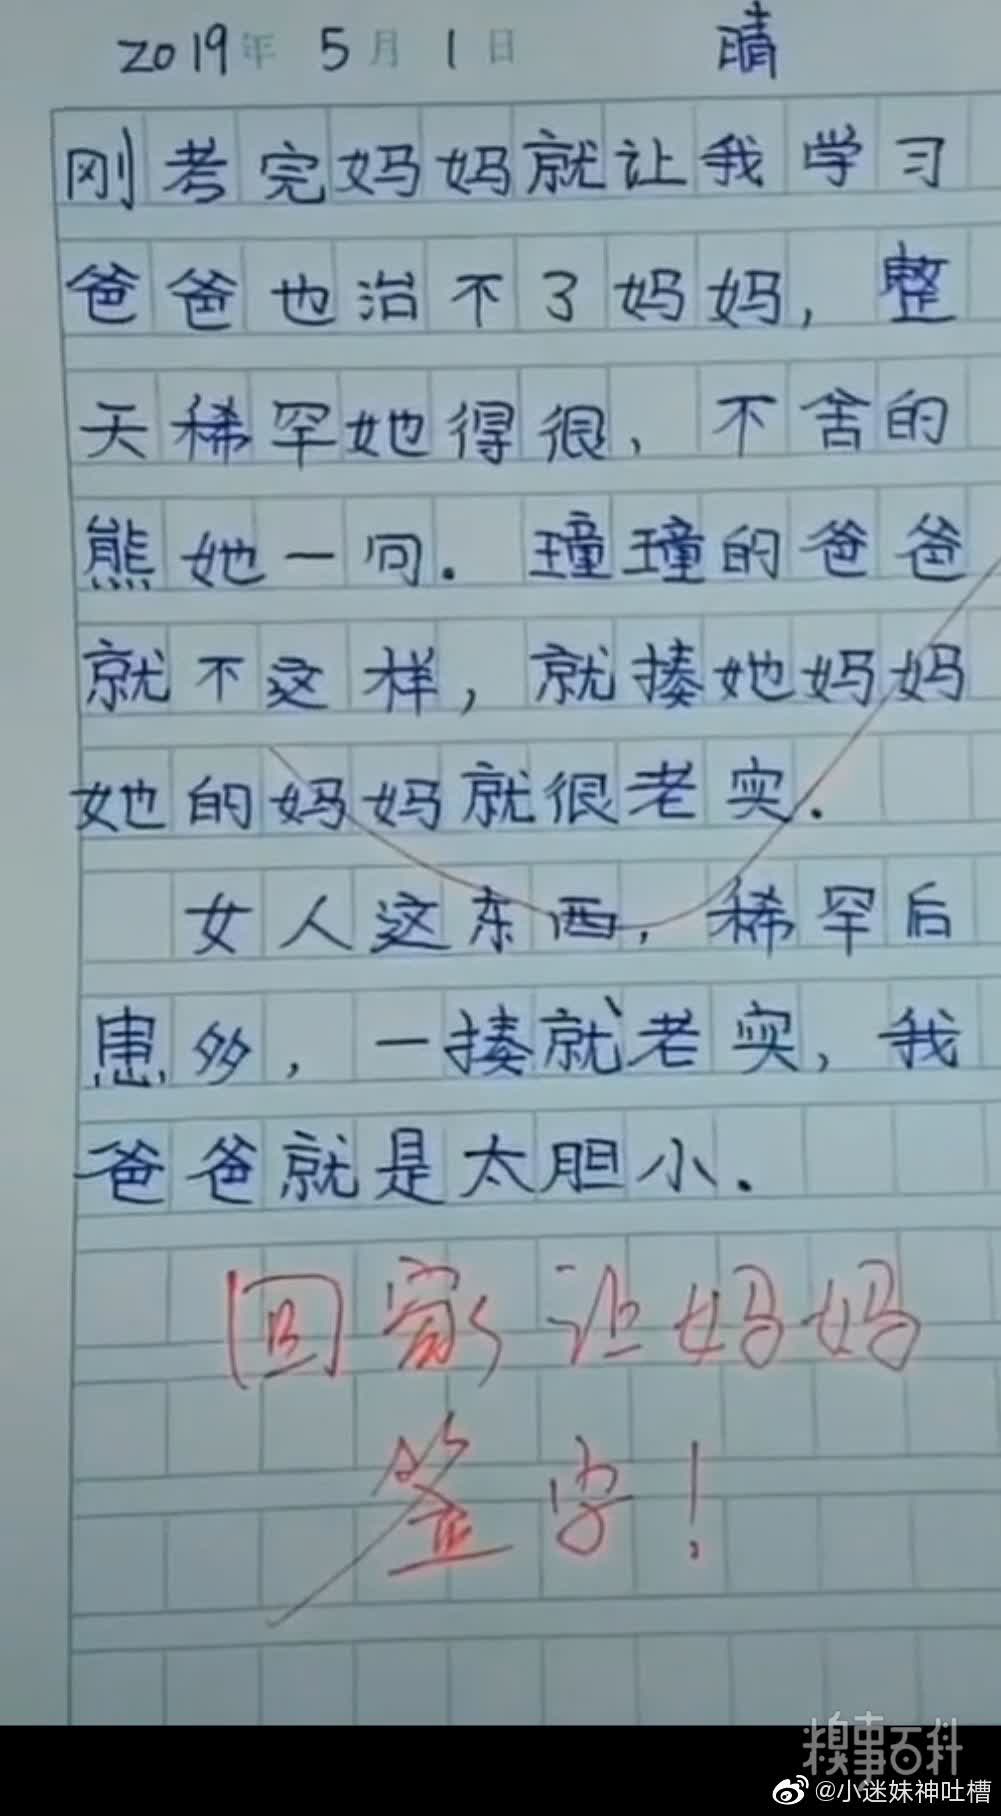 2019年 5月 1日 晴
刚考完妈妈就让我学习
爸爸也治不了妈妈，整
天稀罕她得很，不舍的
熊她一句.瑾瑾的爸爸
就不这样，就揍她妈妈
她的妈妈就很老实.
女人这东西，稀罕后
患多，一揍就老实，我
爸爸就是太胆小.
回家让妈妈
签字！
糗事百科
@小迷妹神吐槽